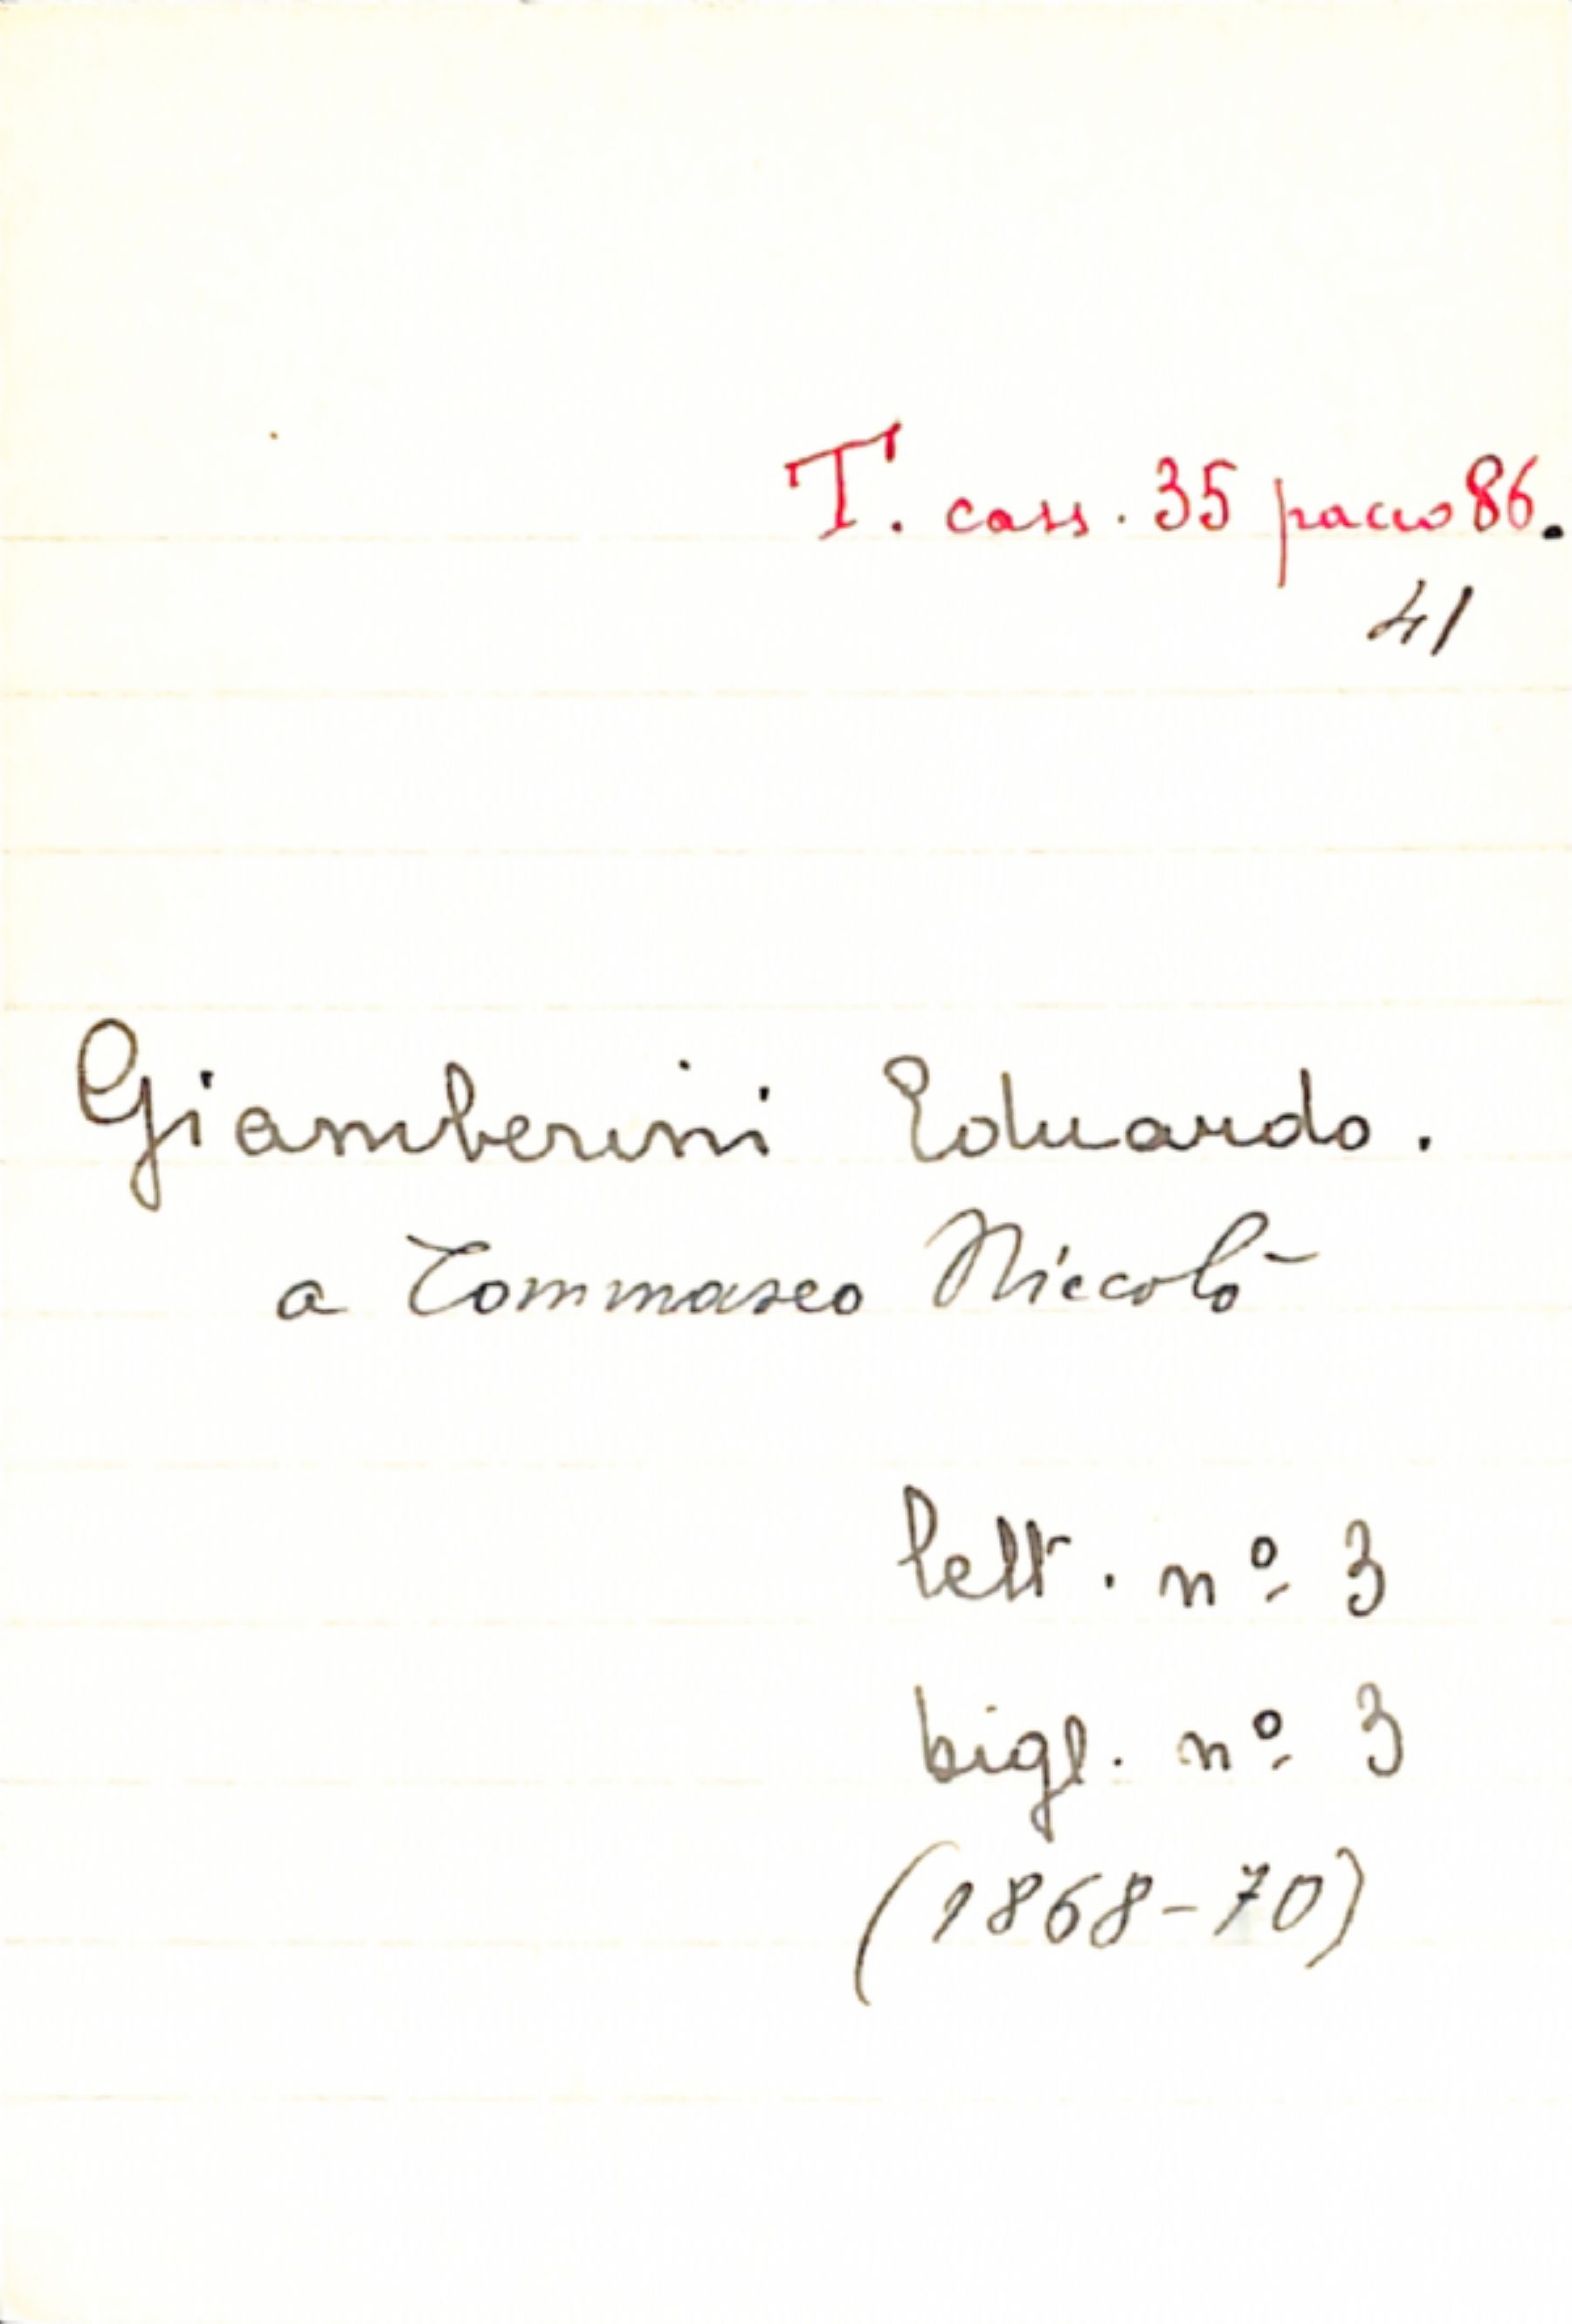 T. cass. 35 pacco 86.
41
Giamberini Eduardo.
a Tommaseo Niccolò
lett. nº 3
bigl. nº 3
(1868-70)